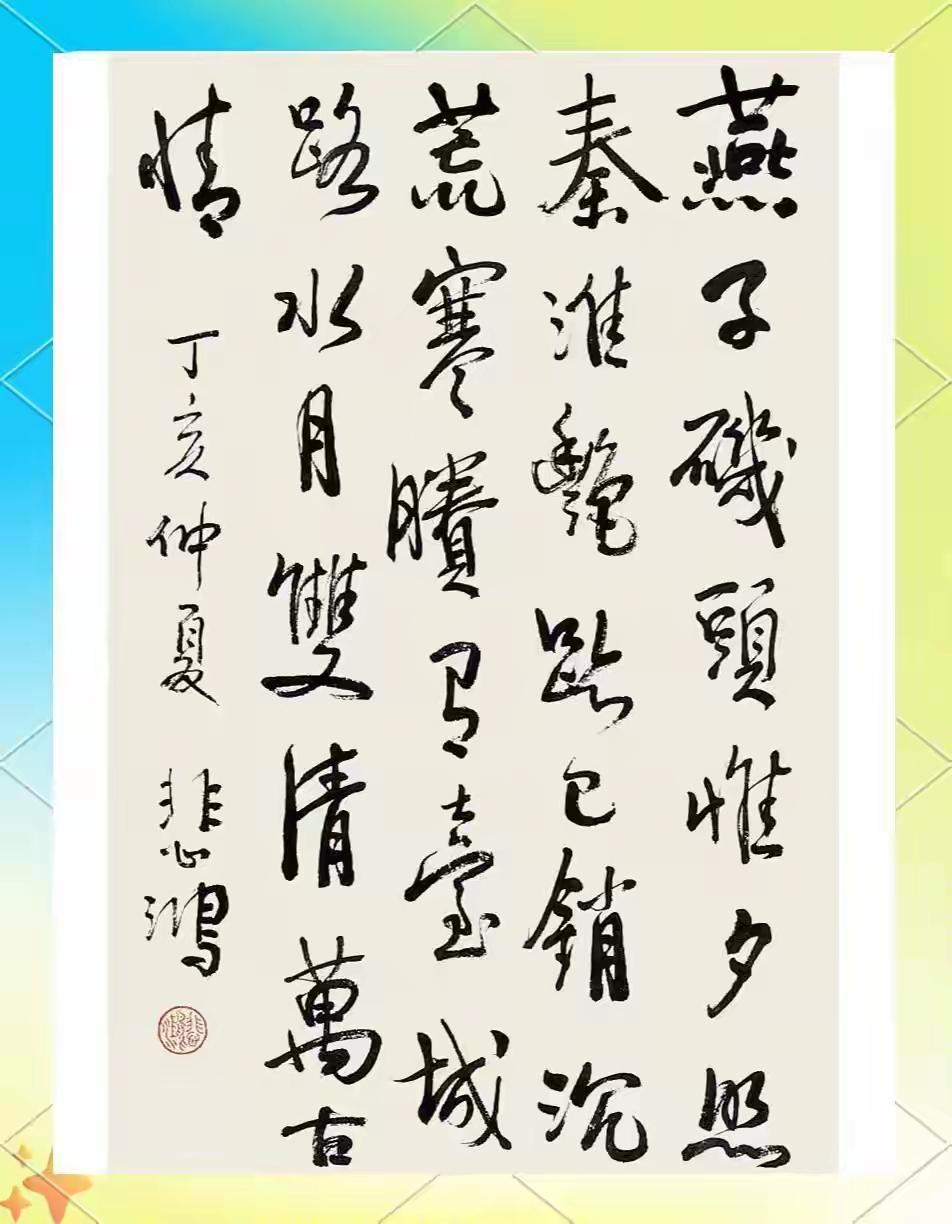 燕子磯頭惟夕照
秦淮艷跡已銷沉
荒寒賸有臺城
路水月雙清萬古
情 丁亥仲夏 悲鴻